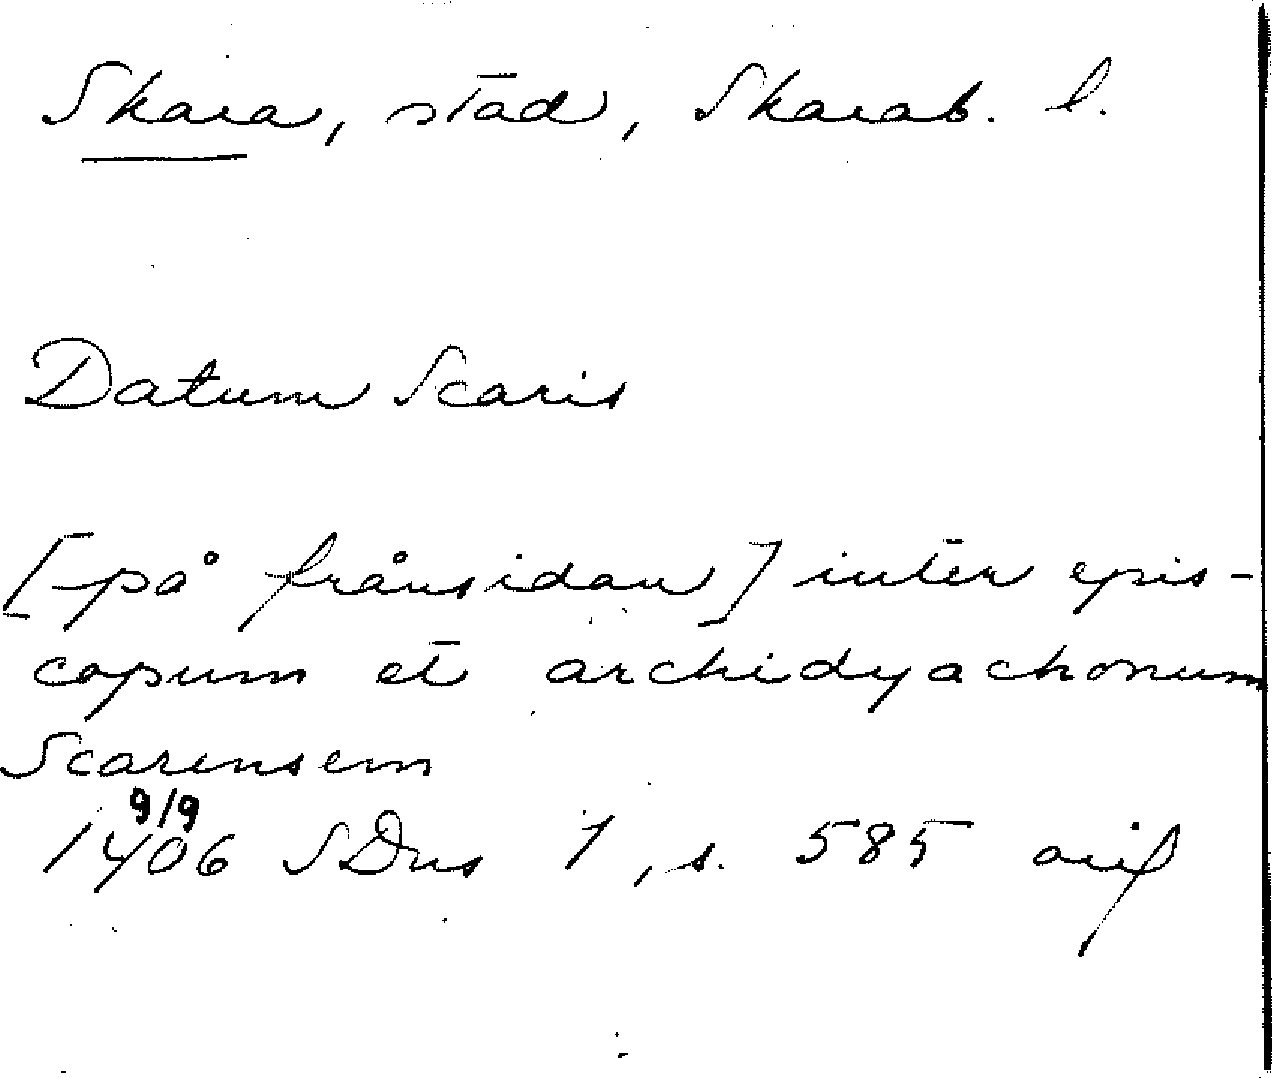 Skara, stad, Skarab. l.
Datum Scaris
[på frånsidan] inter epis-
copum et archidyachonum
Scarensem
9/9
1406 SDns 1, s. 585 orig